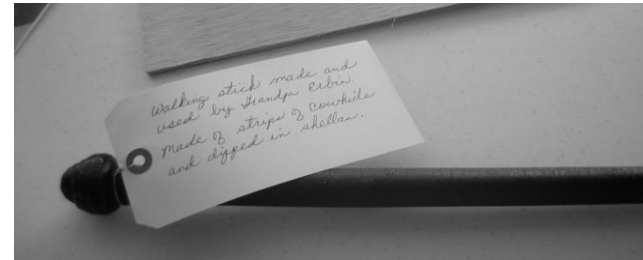 Walking stick made and
used by Grandpa Erbin.
Made of strips of cowhide
and dipped in shellac.